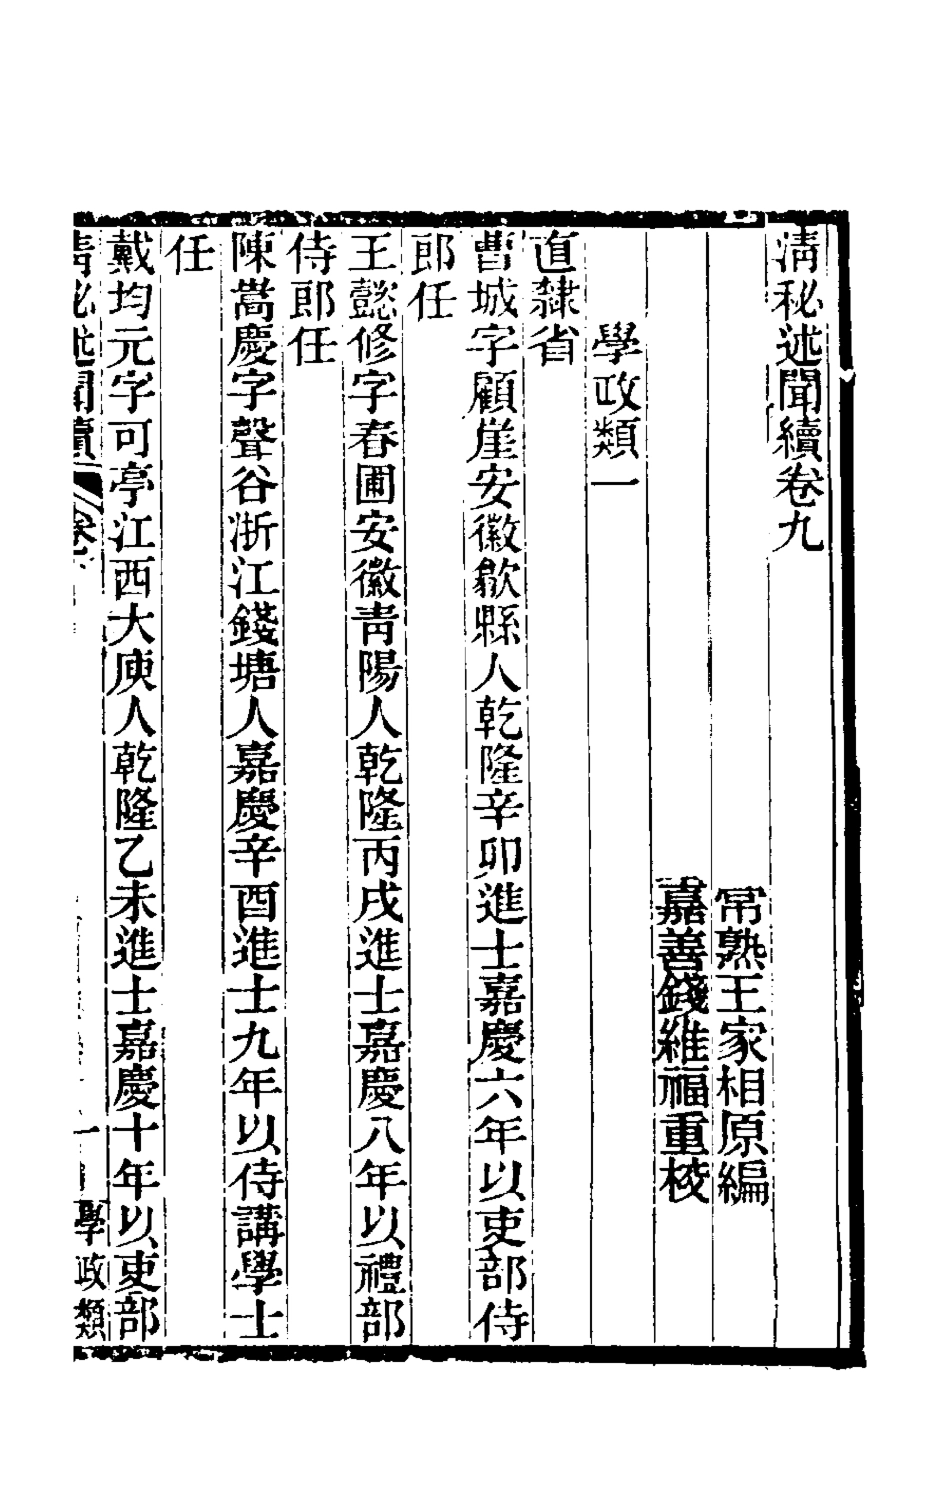 清秘述聞續卷九
常熟王家相原編
嘉善錢維福重校
學政類一
直隸省
曹城字顧崖安徽歙縣人乾隆辛卯進士嘉慶六年以吏部侍
郎任
王懿修字春圃安徽青陽人乾隆丙戌進士嘉慶八年以禮部
侍郎任
陳嵩慶字聲谷浙江錢塘人嘉慶辛酉進士九年以侍講學士
任
戴均元字可亭江西大庾人乾隆乙未進士嘉慶十年以吏部
清秘述聞續 卷 一 學政類